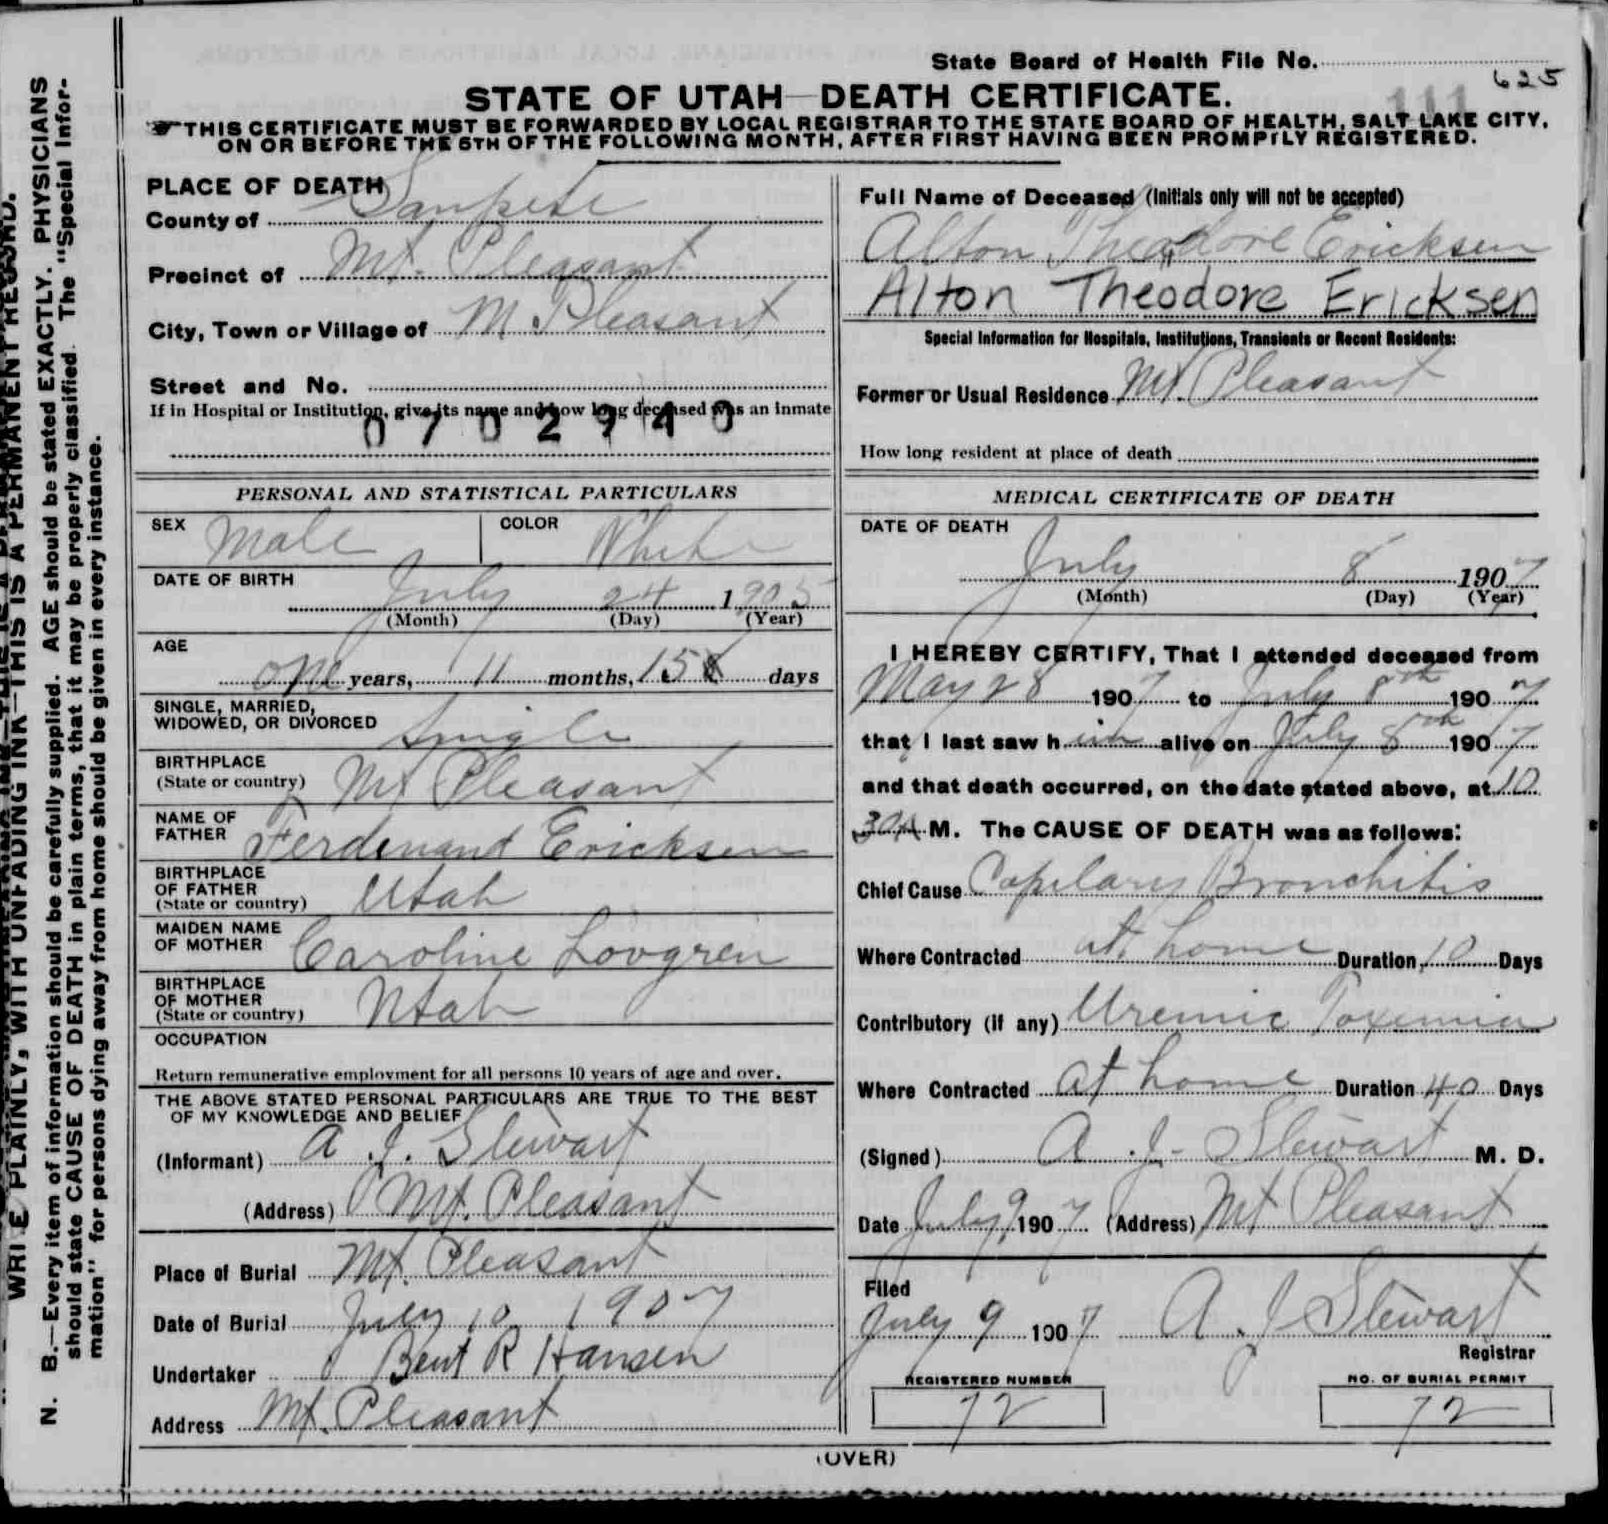 State Board of Health File No. 625
111
STATE OF UTAH—DEATH CERTIFICATE.
THIS CERTIFICATE MUST BE FORWARDED BY LOCAL REGISTRAR TO THE STATE BOARD OF HEALTH, SALT LAKE CITY,
ON OR BEFORE THE 5TH OF THE FOLLOWING MONTH, AFTER FIRST HAVING BEEN PROMPTLY REGISTERED.
PLACE OF DEATH
County of Sanpete
Precinct of Mt. Pleasant
City, Town or Village of M Pleasant
Street and No.
If in Hospital or Institution, give its name and how long deceased was an inmate
0702940
Full Name of Deceased (Initials only will not be accepted)
Alton Theodore Ericksen
Alton Theodore Ericksen
Special Information for Hospitals, Institutions, Transients or Recent Residents:
Former or Usual Residence Mt. Pleasant
How long resident at place of death
PERSONAL AND STATISTICAL PARTICULARS
SEX Male COLOR White
DATE OF BIRTH
July 24 1905
(Month) (Day) (Year)
AGE
one years, 11 months, 15 days
SINGLE, MARRIED,
WIDOWED, OR DIVORCED Single
BIRTHPLACE
(State or country) Mt Pleasant
NAME OF
FATHER Ferdenand Ericksen
BIRTHPLACE
OF FATHER
(State or country) Utah
MAIDEN NAME
OF MOTHER Caroline Lovgren
BIRTHPLACE
OF MOTHER
(State or country) Utah
OCCUPATION
Return remunerative employment for all persons 10 years of age and over.
THE ABOVE STATED PERSONAL PARTICULARS ARE TRUE TO THE BEST
OF MY KNOWLEDGE AND BELIEF
(Informant) A. J. Stewart
(Address) Mt. Pleasant
Place of Burial Mt. Pleasant
Date of Burial July 10 1907
Undertaker Bent R Hansen
Address Mt. Pleasant
MEDICAL CERTIFICATE OF DEATH
DATE OF DEATH
July 8 1907
(Month) (Day) (Year)
I HEREBY CERTIFY, That I attended deceased from
May 28 1907 to July 8th 1907
that I last saw him alive on July 8th 1907
and that death occurred, on the date stated above, at 10
30A M. The CAUSE OF DEATH was as follows:
Chief Cause Capilary Bronchitis
Where Contracted at home Duration 10 Days
Contributory (if any) Uremic Toxemia
Where Contracted at home Duration 40 Days
(Signed) A. J. Stewart M. D.
Date July 9 1907 (Address) Mt Pleasant
Filed
July 9 1907 A J Stewart
Registrar
REGISTERED NUMBER
72
NO. OF BURIAL PERMIT
72
(OVER)
WRITE PLAINLY, WITH UNFADING INK—THIS IS A PERMANENT RECORD.
N. B.—Every item of information should be carefully supplied. AGE should be stated EXACTLY. PHYSICIANS
should state CAUSE OF DEATH in plain terms, that it may be properly classified. The "Special Infor-
mation" for persons dying away from home should be given in every instance.